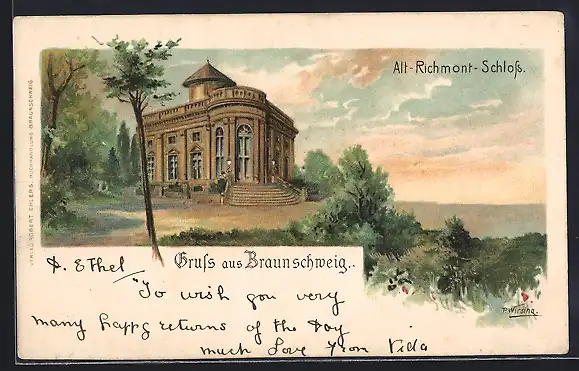 Alt-Richmont-Schloß.
VERLAG ROBERT EHLERS, BUCHHANDLUNG BRAUNSCHWEIG
Gruß aus Braunschweig..
D. Ethel
"To wish you very
many happy returns of the Day
much Love from Vida